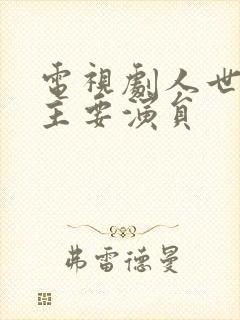 電視劇人世
主要演員
弗雷德曼